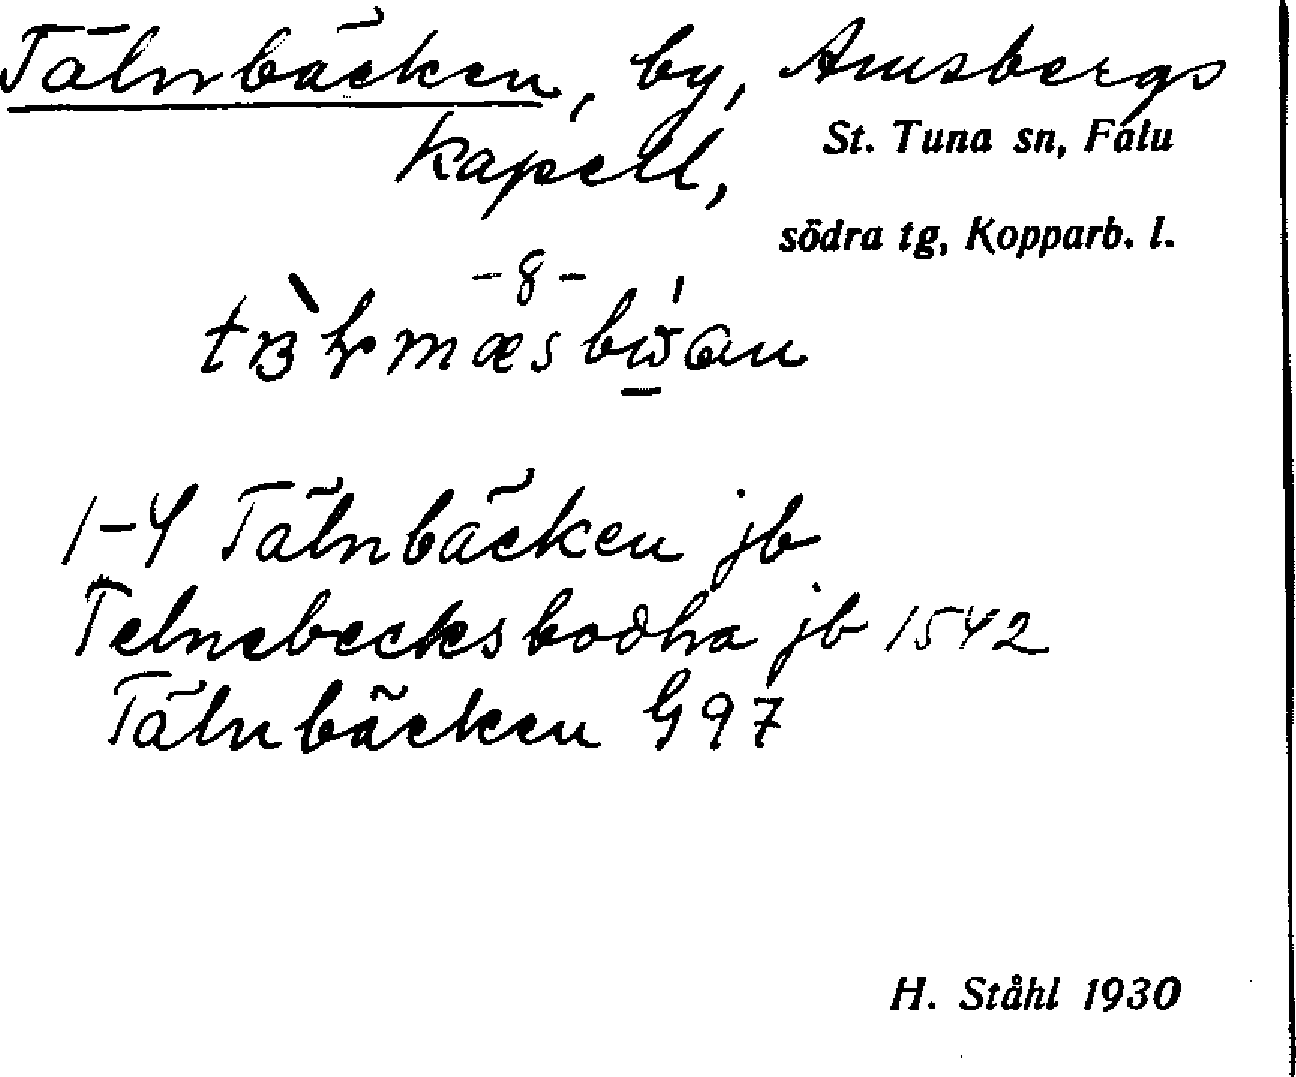 Tälnbäcken, by, Amsbergs
kapell,
St. Tuna sn, Falu
södra tg, Kopparb. l.
1-4 Tälnbäcken jb
Telnebecksbodha jb 1542
Tälnbäcken G97
H. Ståhl 1930